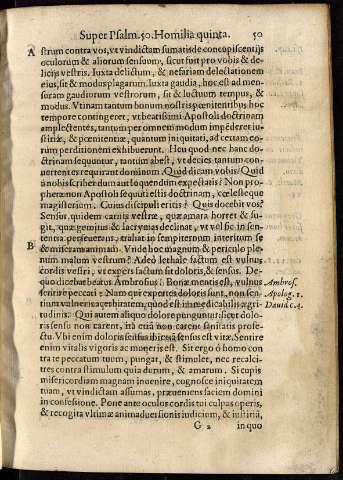 Super Psalm. 50. Homilia quinta. 50
A strum contra vos, vt vindictam sumatis de concupiscentijs
oculorum & aliorum sensuum, sicut fuit pro vobis & de-
licijs vestris. Iuxta delictum, & nefariam delectationem
eius, sit & modus plagarum, iuxta gaudia, hoc est ad men-
suram gaudiorum vestrorum, sit & luctuum tempus, &
modus. Vtinam tantum bonum nostris pœnitentibus hoc
tempore contingeret, vt beatissimi Apostoli doctrinam
amplectentes, tantum per omnem modum impéderet ius-
titiæ, & pœnitentiæ, quantum iniquitati, ad certam eo-
rum perditionem exhibuerunt. Heu quod nec hanc do-
ctrinam sequuntur, tantùm abest, vt decies tantum con-
uertentes requirant dominum. Quid dicam vobis? Quid
à nobis scribendum aut loquendum expectatis? Non pro-
pheræ non Apostoli sequuti estis doctrinam, & cæleste
magisterium. Cuius discipuli eritis? Quis docebit vos?
Sensus quidem carnis vestræ, quæ amara horret & fu-
git, quæ gemitus & lacrymas declinat, vt vel sic in sen-
tentia perseueret, trahat in sempiternum interitum se
B & miseram animam. Vnde hoc magnum & periculo ple-
num malum vestrum? Adeò lethale factum est vulnus
cordis vestri, vt expers factum sit doloris, & sensus. De-
quo dicebat beatus Ambrosius: Bonæ mentis est, vulnus Ambros.
sentire peccati: Nam qui expertes doloris sunt, non sen- Apolog. 1.
tiunt vulneris acerbitatem, quod est immedicabilis ægri- Dauid c. 4.
tudinis. Qui autem aliquo dolore punguntur, sicut dolo-
ris sensu non carent, ita etiā non carent sanitatis profe-
ctu. Vbi enim doloris sensus ibi etiā sensus est vitæ. Sentire
enim vitalis vigoris ac muneris est. Sit ergò ô homo con
tra te peccatum tuum, pungat, & stimulet, nec recalci-
tres contra stimulum quia durum, & amarum. Si cupis
misericordiam magnam inuenire, cognosce iniquitatem
tuam, vt vindictam assumas, præueniens faciem domini
in confessione. Pone ante oculos cordis tui culpas operis,
& recogita vltimæ animaduersionis iudicium, & iustitiā,
G 2 in quo